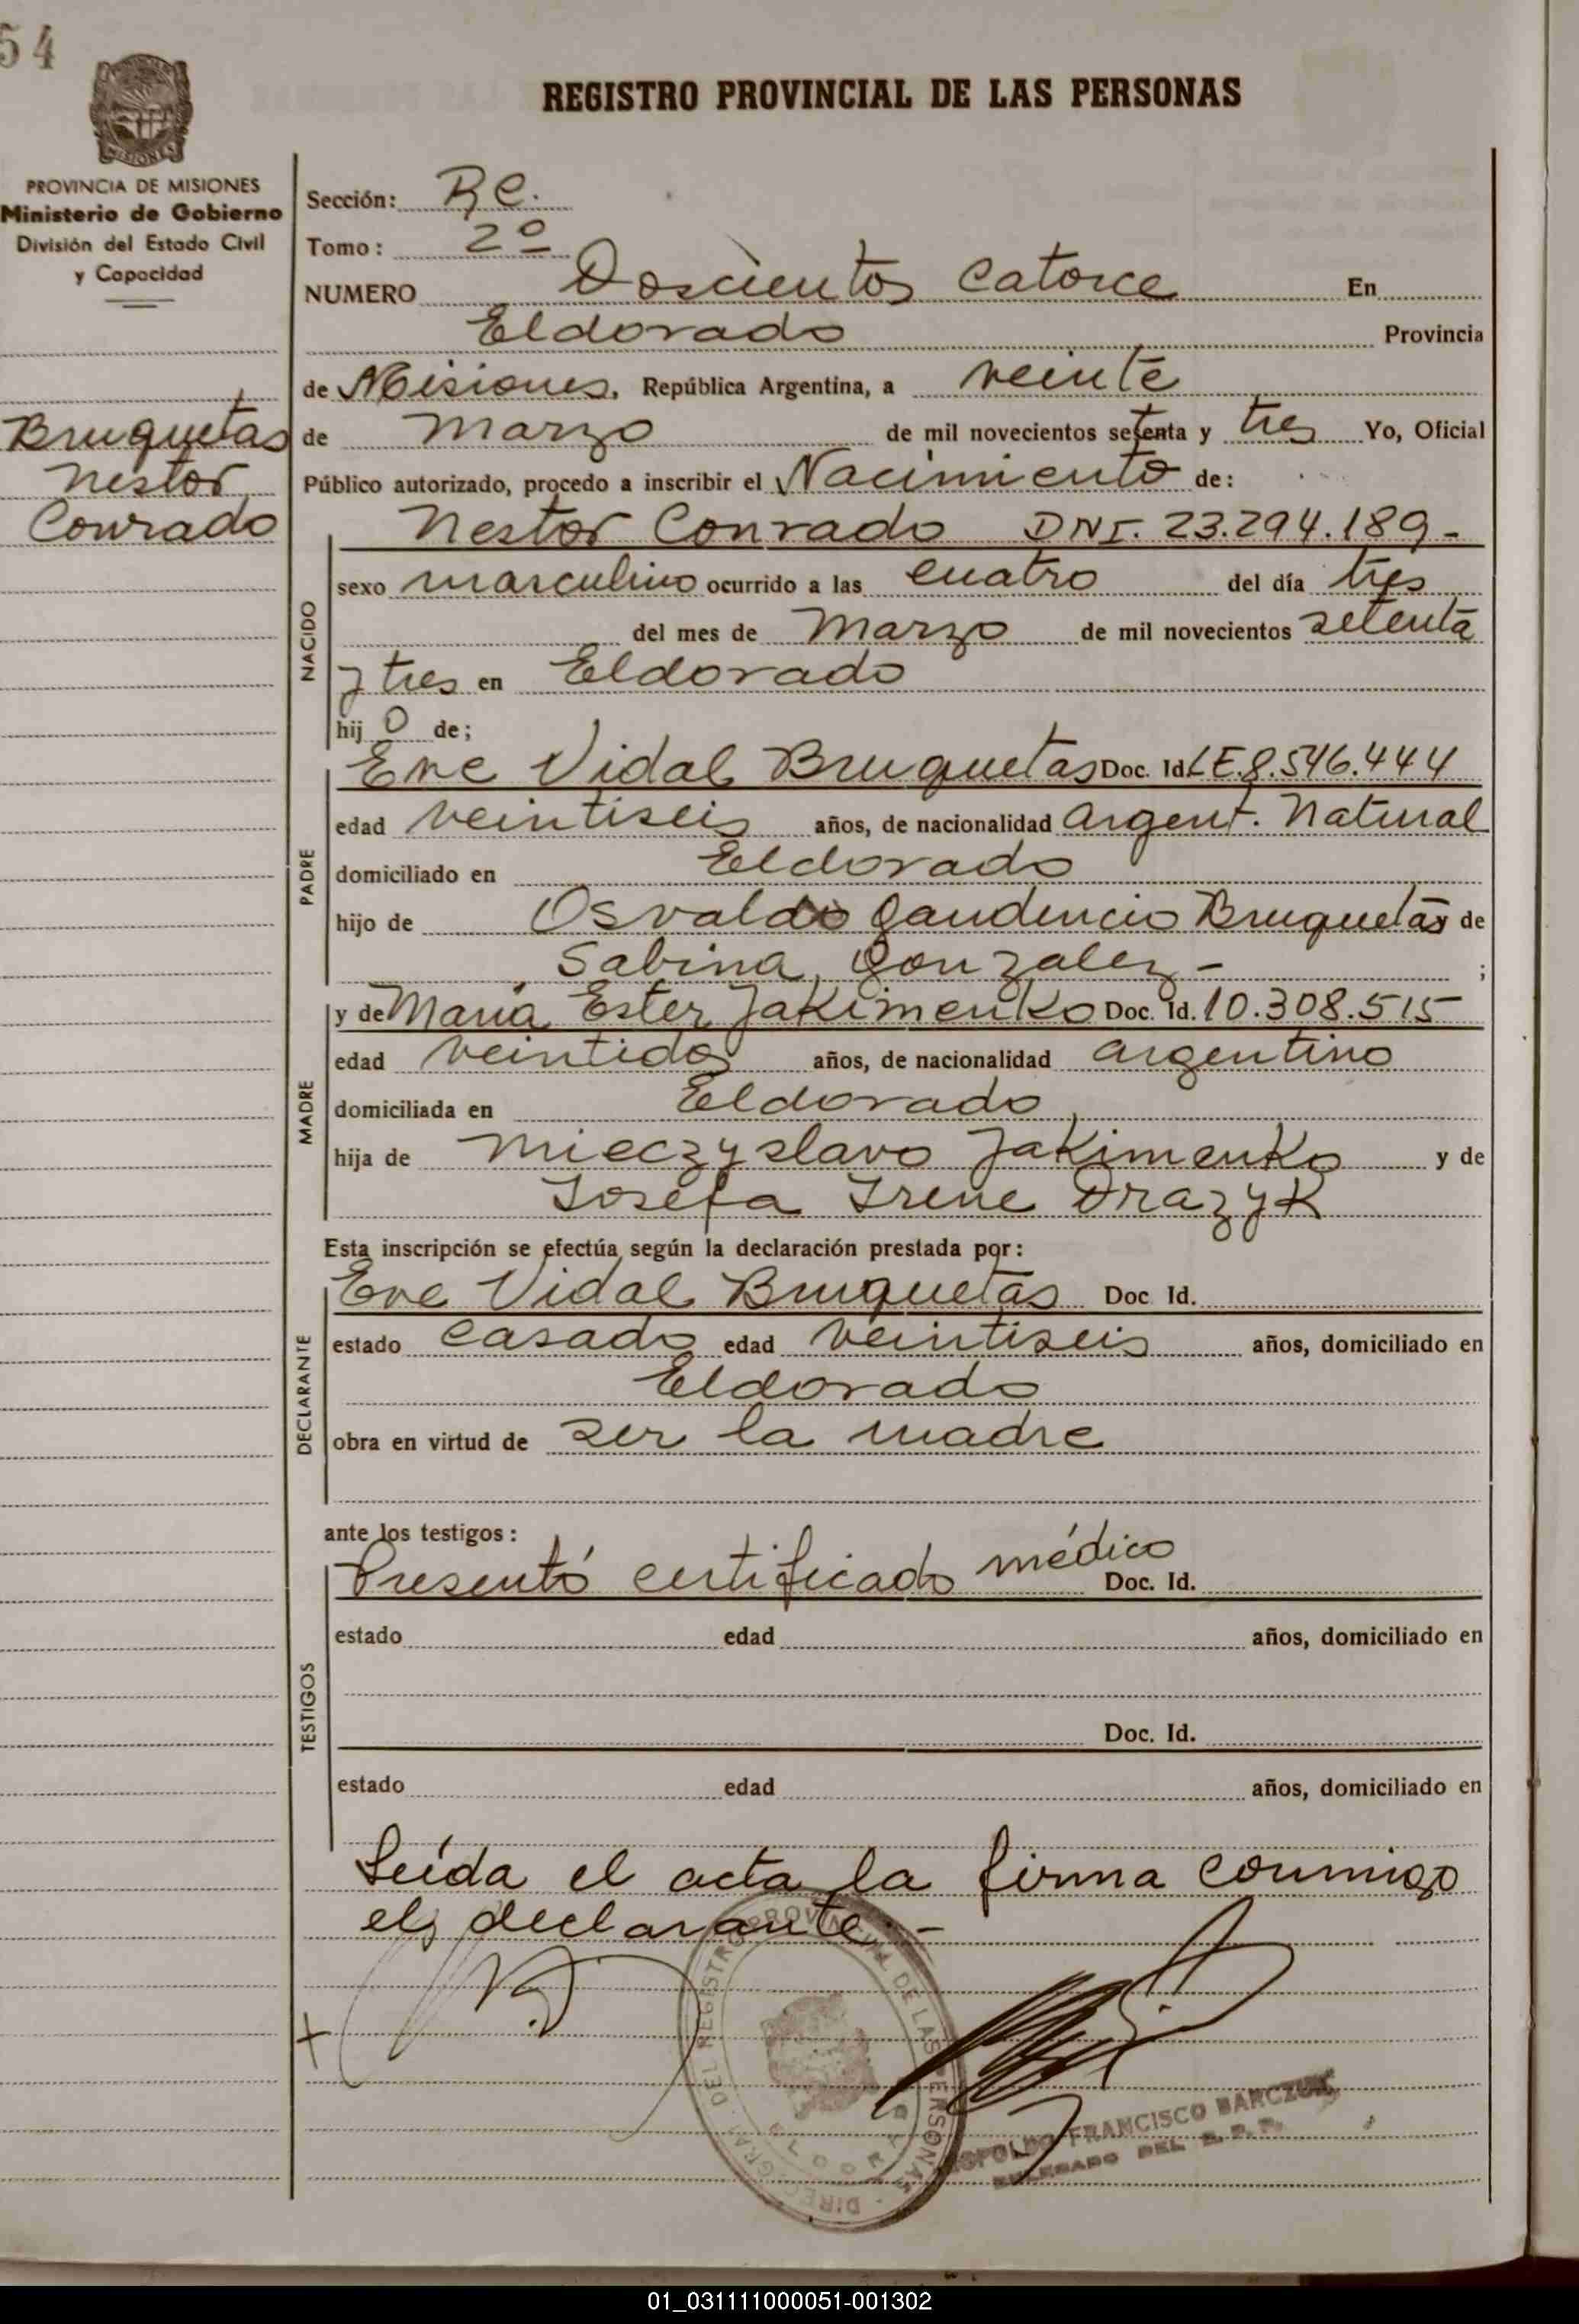 54
MISIONES
PROVINCIA DE MISIONES
Ministerio de Gobierno
División del Estado Civil
y Capacidad
Bruquetas
Nestor
Conrado
REGISTRO PROVINCIAL DE LAS PERSONAS
Sección: Rc.
Tomo: 2º
NUMERO Doscientos catorce En
Eldorado Provincia
de Misiones, República Argentina, a veinte
de Marzo de mil novecientos setenta y tres Yo, Oficial
Público autorizado, procedo a inscribir el Nacimiento de:
NACIDO
Nestor Conrado DNI. 23.294.189-
sexo masculino ocurrido a las cuatro del día tres
del mes de Marzo de mil novecientos setenta
y tres en Eldorado
hij o de;
PADRE
Eve Vidal Bruquetas Doc. Id. LE.8.546.444
edad veintiseis años, de nacionalidad argent. Natural
domiciliado en Eldorado
hijo de Osvaldo Gaudencio Bruquetas y de
Sabina Gonzalez - ;
MADRE
y de Maria Ester Jakimenko Doc. Id. 10.308.515
edad veintidos años, de nacionalidad argentino
domiciliada en Eldorado
hija de Mieczyslavo Jakimenko y de
Josefa Irene Drazyk
Esta inscripción se efectúa según la declaración prestada por:
DECLARANTE
Eve Vidal Bruquetas Doc Id.
estado casado edad veintiseis años, domiciliado en
Eldorado
obra en virtud de ser la madre
ante los testigos:
TESTIGOS
Presentó certificado médico Doc. Id.
estado edad años, domiciliado en
Doc. Id.
estado edad años, domiciliado en
Leída el acta la firma conmigo
el declarante.-
DIREC. GRAL. DEL REGISTRO PROVINCIAL DE LAS PERSONAS
ELDORADO
FRANCISCO BARCZUK
DELEGADO DEL R. P. P.
01_031111000051-001302